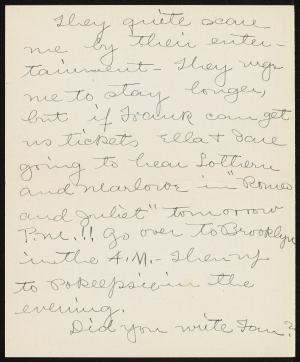 They quite scare
me by their enter-
tainment - They urge
me to stay longer,
but if Frank can get
us tickets Ella & I are
going to hear Sothern
and Marlowe in "Romeo
and Juliet" tomorrow
P.M.!! Go over to Brooklyn
in the A.M. - Then
to Pokeepsie in the
evening.
Did you write